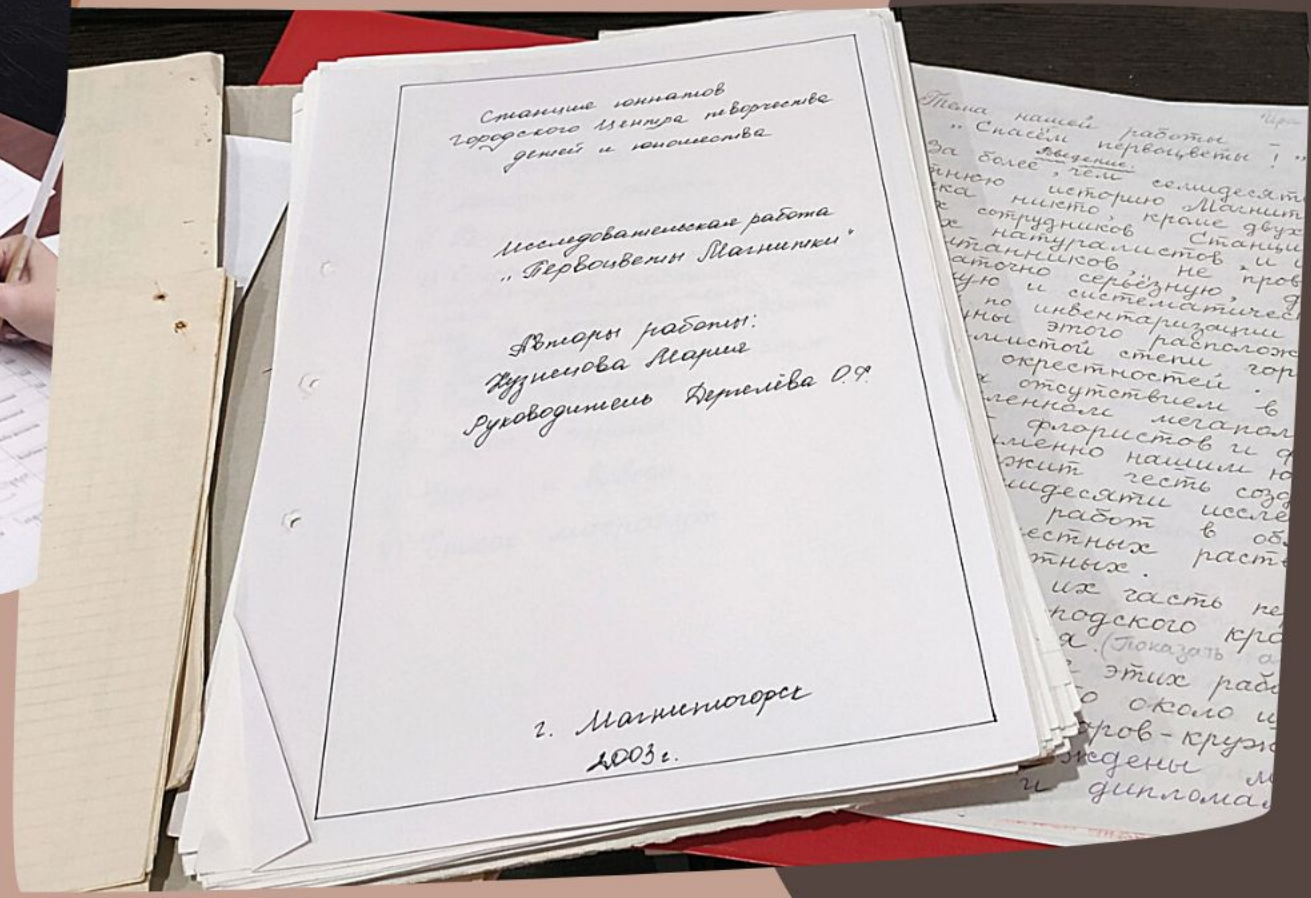 Станция юннатов
городского Центра творчества
детей и юношества
Исследовательская работа
„Первоцветы Магнитки"
Авторы работы:
Кузнецова Мария
Руководитель Дерелёва О.Ф.
г. Магнитогорск
2003г.
Тема нашей работы –
„Спасём первоцветы!"
Введение.
За более, чем семидесяти
тнюю историю Магнит
ка никто, кроме двух
х сотрудников Станци
х натуралистов и и
итанников, не пров
аточно серьёзную, д
ую и систематичес
по инвентаризации
уны этого располож
лмистой степи гор
окрестностей.
х отсутствием в
ленном мегапол
флористов и ф
менно нашим ю
жит честь созд
мидесяти иссле
работ в обл
естных расте
тных.
их часть пе
одского кра
я. (Показать а
е этих рабо
о около ш
ров-круж
ждены м
и диплома